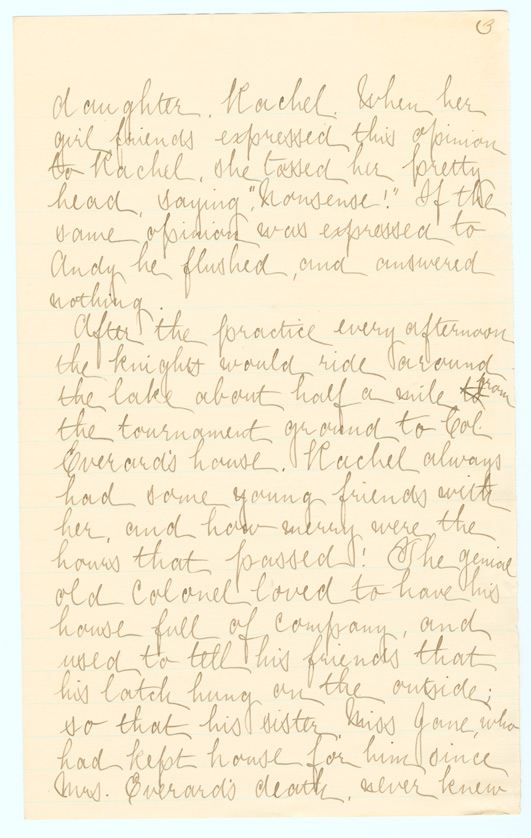 3
daughter, Rachel. When her
girl friends expressed this opinion
to Rachel, she tossed her pretty
head, saying, "Nonsense!" If the
same opinion was expressed to
Andy he flushed, and answered
nothing.
After the practice every afternoon
the knights would ride around
the lake about half a mile from
the tournament ground to Col.
Everard's house. Rachel always
had some young friends with
her, and how merry were the
hours that passed! The genial
old Colonel loved to have his
house full of company, and
used to tell his friends that
his latch hung on the outside;
so that his sister Miss Jane, who
had kept house for him since
Mrs. Everard's death, never knew